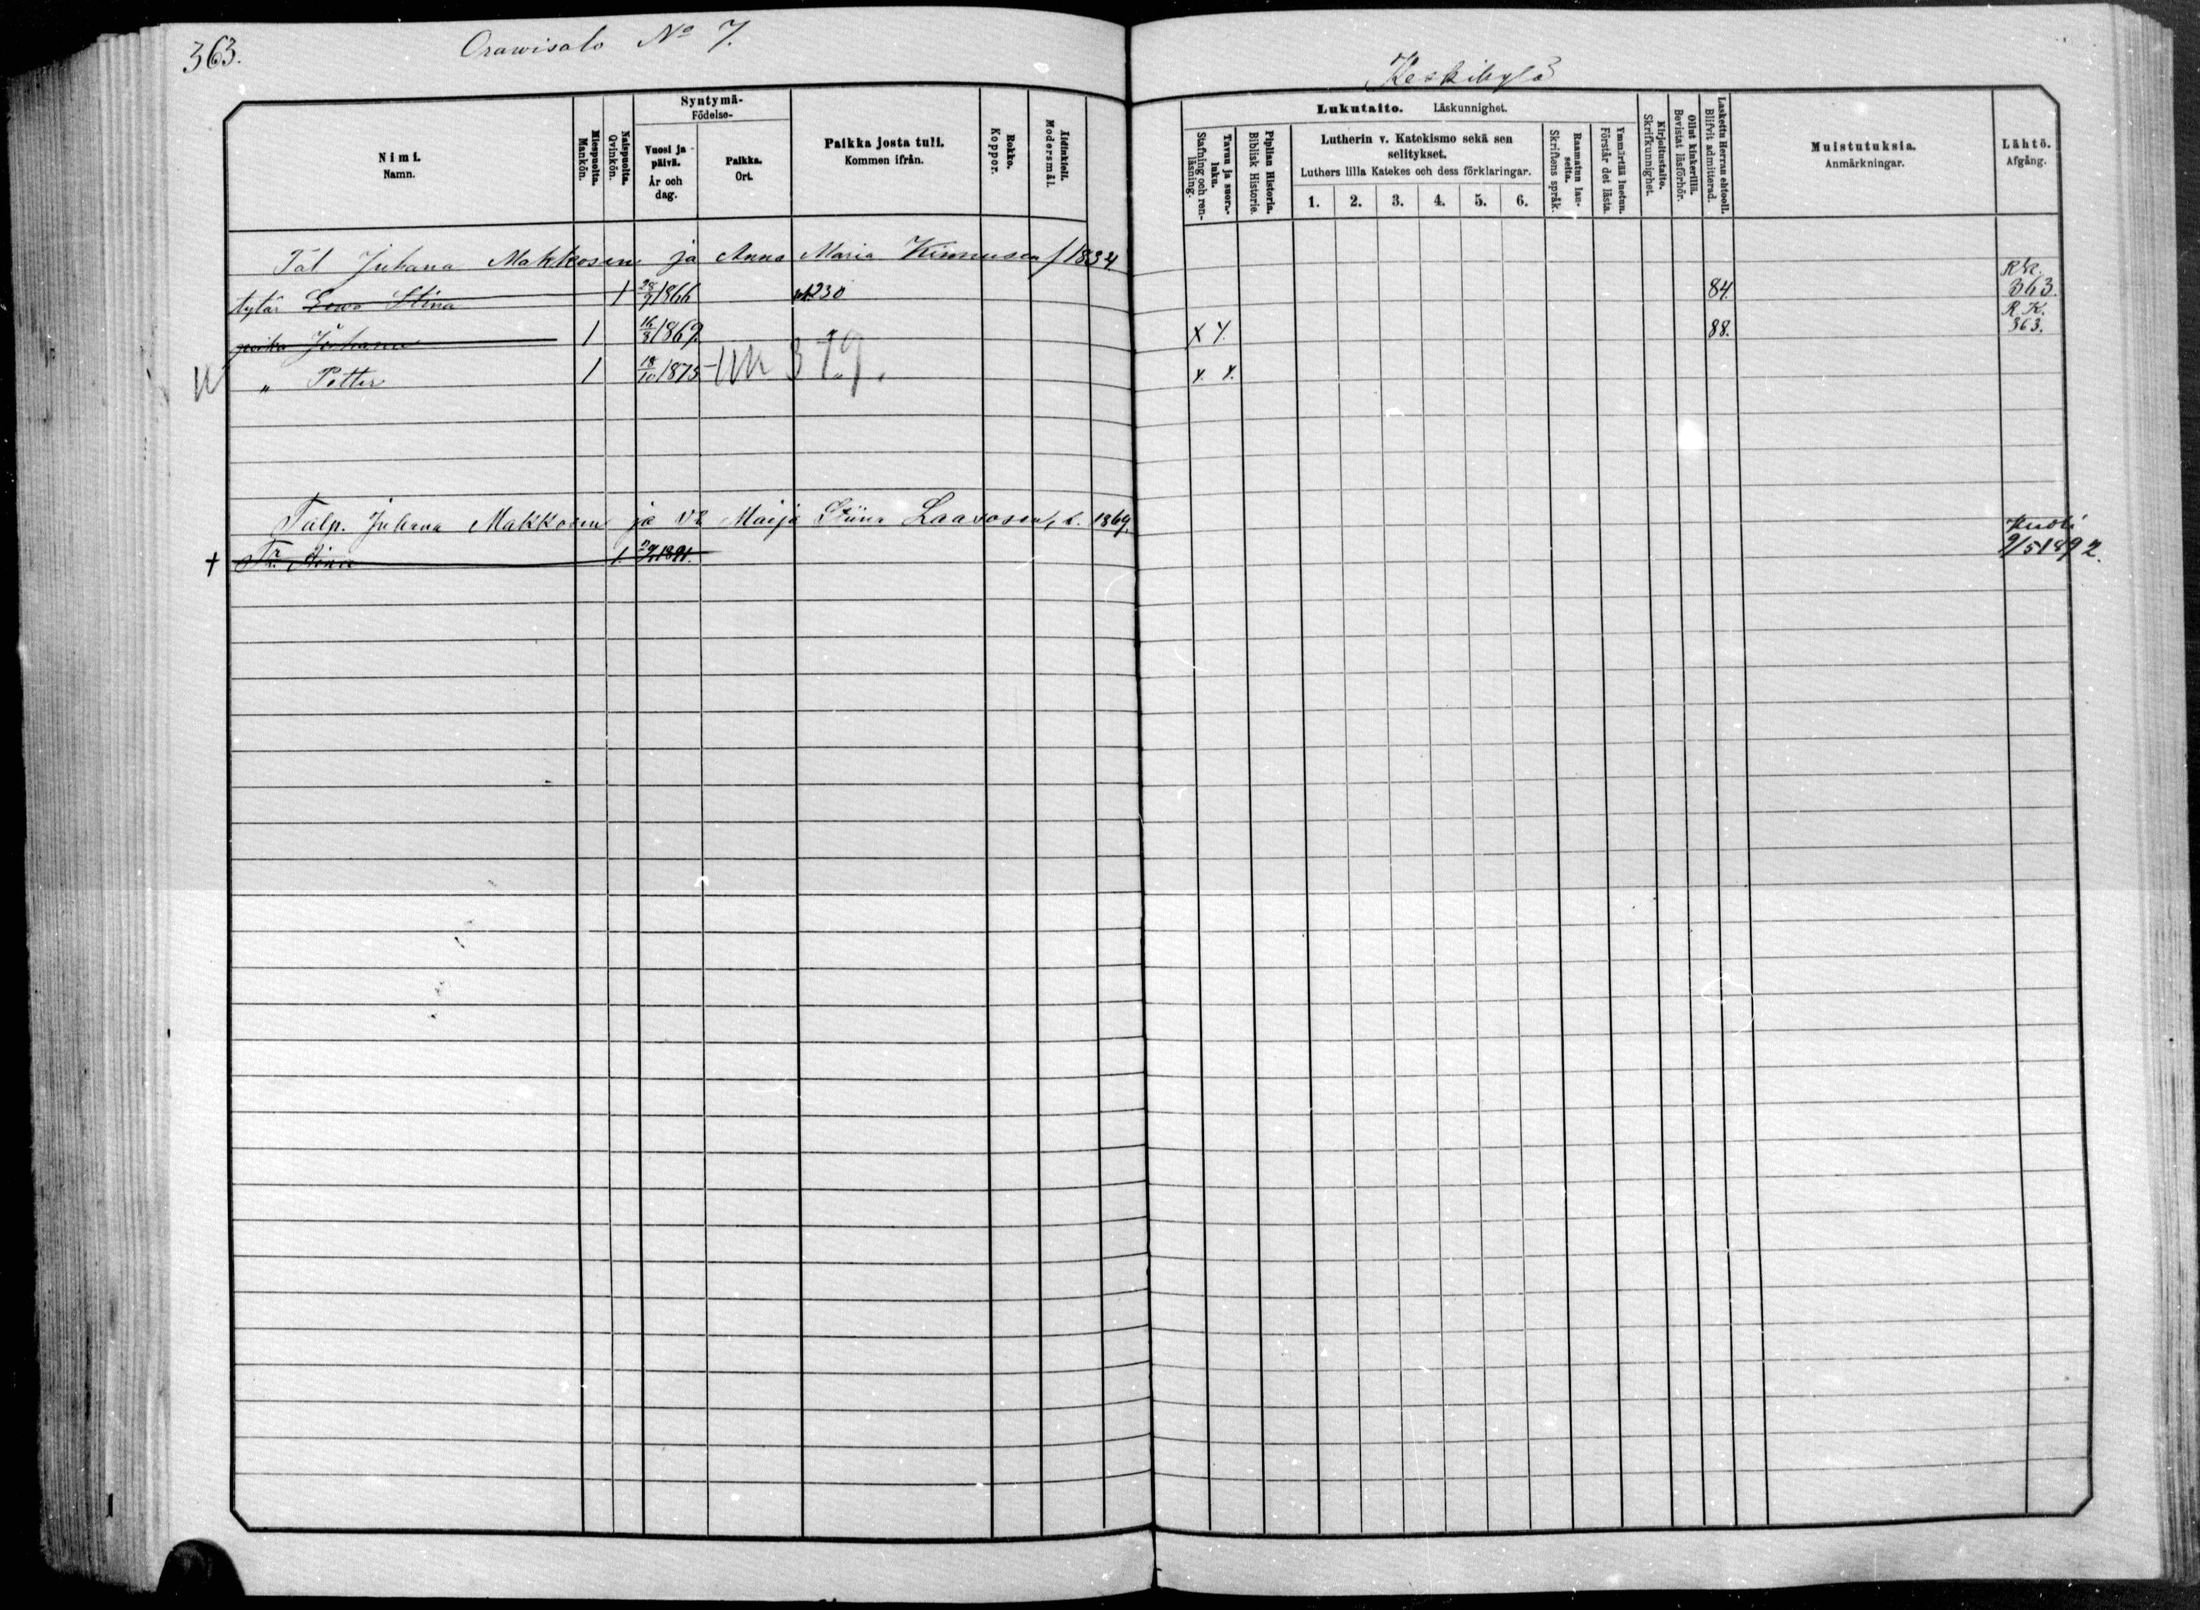 363.
Orawisalo No 7.
Keskikylä
Nimi.
Namn.
Miespuolta.
Mankön.
Naispuolta.
Qvinkön.
Syntymä-
Födelse-
Vuosi ja
päivä.
År och
dag.
Paikka.
Ort.
Paikka josta tuli.
Kommen ifrån.
Rokko.
Koppor.
Äidinkieli.
Modersmål.
Lukutaito. Läskunnighet.
Tavuu ja suora-
luku.
Stafning och ren-
läsning.
Piplian Historia.
Biblisk Historie.
Lutherin v. Katekismo sekä sen
selitykset.
Luthers lilla Katekes och dess förklaringar.
1. 2. 3. 4. 5. 6.
Raamatun lau-
seita.
Skriftens språk.
Ymmärtää luetun.
Förstår det lästa.
Kirjoitustaito.
Skrifkunnighet.
Ollut kinkerillä.
Bevistat läsförhör.
Laskettu Herran ehtool.
Blifvit admitterad.
Muistutuksia.
Anmärkningar.
Lähtö.
Afgång.
Tal Juhana Makkosen ja Anna Maria Kinnusen / 1834
tytär Eewa Stina 1 28/9 1866 230 84. RK. 363.
poika Juhana 1 16/8 1869. X Y. 88. R.K. 363.
„ Petter 1 18/10 1875 379. „ Y. Y.
Talp. Juhana Makkosen ja v2 Maija Stiina Laasosen, s. 1869.
† Tr. Aina 1. 1891. kuoli 9/5 1892.